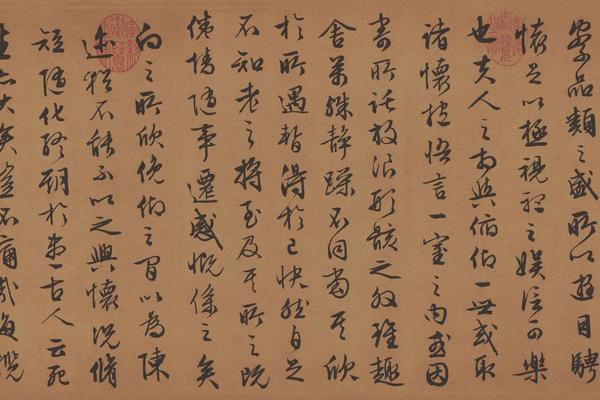 察品類之盛所以遊目騁
懷足以極視聽之娛信可樂
也夫人之相與俯仰一世或取
諸懷抱悟言一室之內或因
寄所託放浪形骸之外雖趣
舍萬殊靜躁不同當其欣
於所遇暫得於己快然自足
不知老之將至及其所之既
倦情隨事遷感慨係之矣
向之所欣俛仰之間以為陳
迹猶不能不以之興懷況脩
短隨化終期於盡古人云死
生亦大矣豈不痛哉每攬